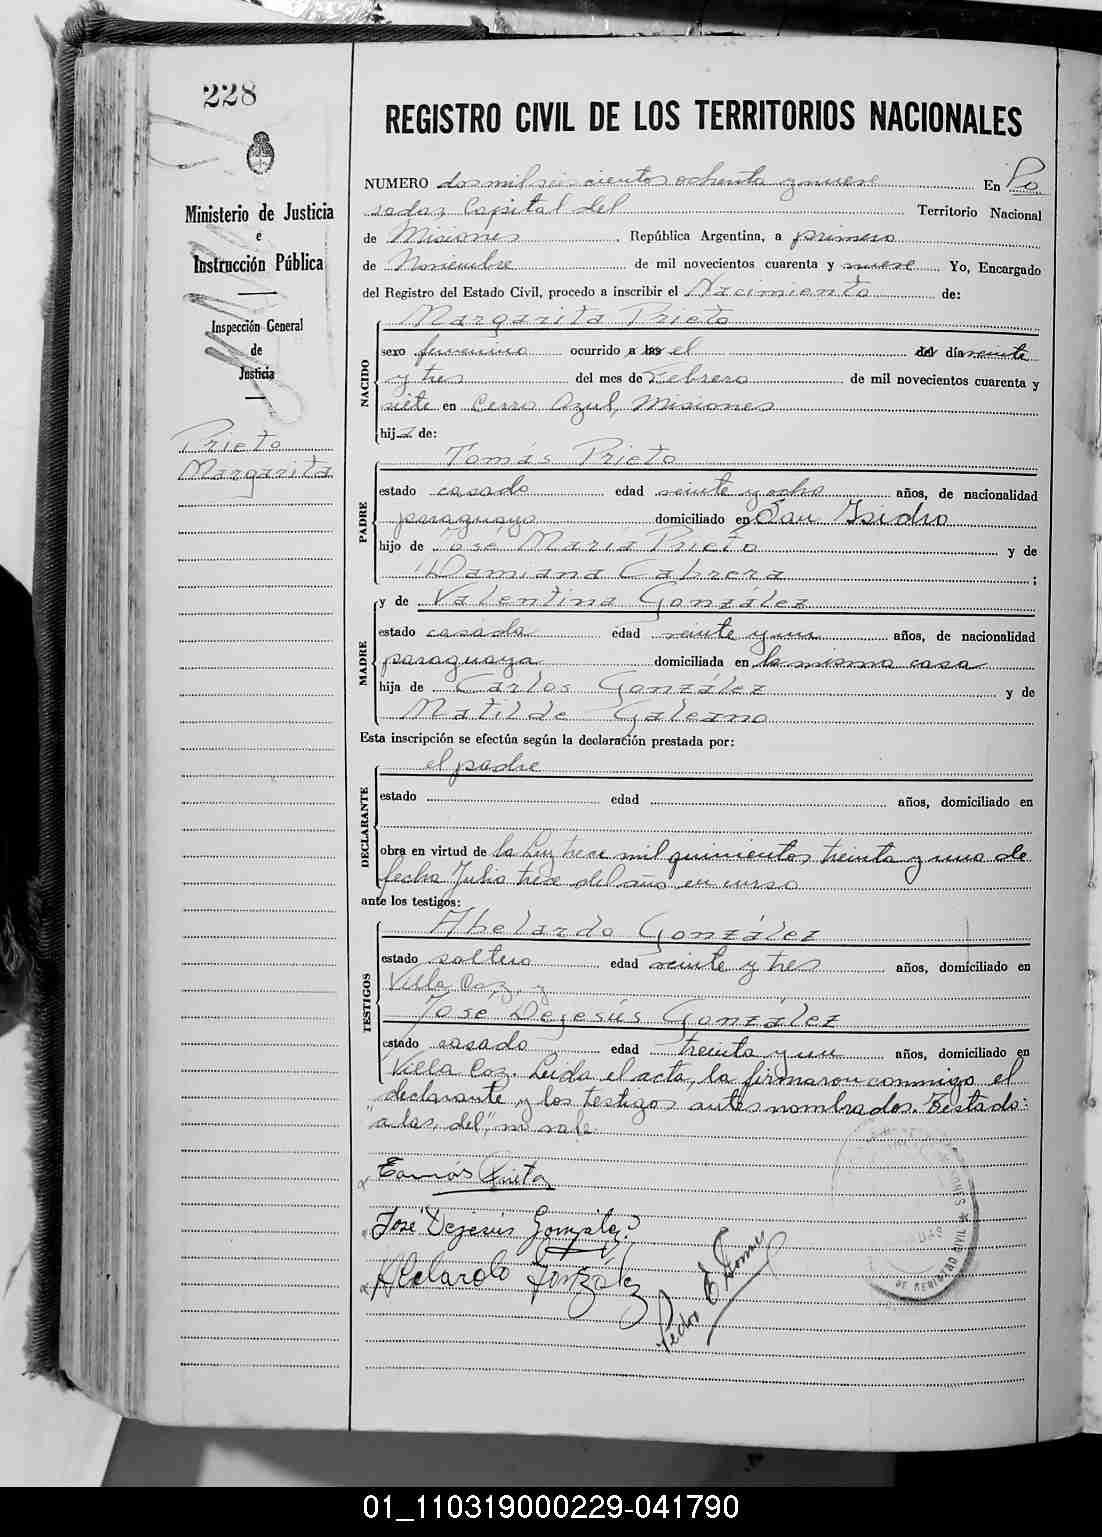 228
REGISTRO CIVIL DE LOS TERRITORIOS NACIONALES
Ministerio de Justicia
e
Instrucción Pública
Inspección General
de
Justicia
Prieto
Margarita
NUMERO dos mil seiscientos ochenta y nueve En Po
sadas Capital del Territorio Nacional
de Misiones, República Argentina, a primero
de Noviembre de mil novecientos cuarenta y nueve Yo, Encargado
del Registro del Estado Civil, procedo a inscribir el Nacimiento de:
NACIDO
Margarita Prieto
sexo femenino ocurrido a las el del día veinte
y tres del mes de Febrero de mil novecientos cuarenta y
siete en Cerro Azul, Misiones
hija de:
PADRE
Tomás Prieto
estado casado edad veinte y ocho años, de nacionalidad
paraguaya domiciliado en San Isidro
hijo de José María Prieto y de
Damiana Cabrera ;
MADRE
y de Valentina González
estado casada edad veinte y un años, de nacionalidad
paraguaya domiciliada en la misma casa
hija de Carlos González y de
Matilde Galeano
Esta inscripción se efectúa según la declaración prestada por:
DECLARANTE
el padre
estado edad años, domiciliado en
obra en virtud de la Ley trece mil quinientos treinta y uno de
fecha Julio trece del año en curso
ante los testigos:
TESTIGOS
Abelardo González
estado soltero edad veinte y tres años, domiciliado en
Villa Coz. y
José Dejesús González
estado casado edad treinta y un años, domiciliado en
Villa Coz. Leída el acta, la firmaron conmigo el
declarante y los testigos antes nombrados. Testado:
"a las, del", no vale.
Tomás Prieto
José Dejesús González
Abelardo González
Pedro E Gomez
DE REGISTRO CIVIL
01_110319000229-041790